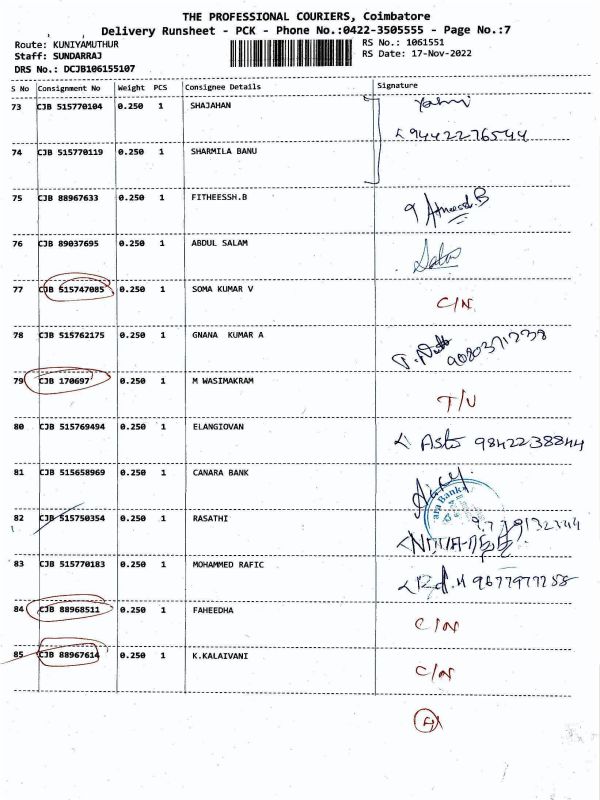 THE PROFESSIONAL COURIERS, Coimbatore
Delivery Runsheet - PCK - Phone No.:0422-3505555 - Page No.:7
Route: KUNIYAMUTHUR RS No.: 1061551
Staff: SUNDARRAJ RS Date: 17-Nov-2022
DRS No.: DCJB106155107
S No Consignment No Weight PCS Consignee Details Signature
73 CJB 515770104 0.250 1 SHAJAHAN
9442276544
74 CJB 515770119 0.250 1 SHARMILA BANU
75 CJB 88967633 0.250 1 FITHEESSH.B
76 CJB 89037695 0.250 1 ABDUL SALAM
77 CJB 515747085 0.250 1 SOMA KUMAR V C/N
78 CJB 515762175 0.250 1 GNANA KUMAR A 9080371238
79 CJB 170697 0.250 1 M WASIMAKRAM
80 CJB 515769494 0.250 1 ELANGIOVAN 9842238844
81 CJB 515658969 0.250 1 CANARA BANK
82 CJB 515750354 0.250 1 RASATHI
83 CJB 515770183 0.250 1 MOHAMMED RAFIC
84 CJB 88968511 0.250 1 FAHEEDHA C/N
85 CJB 88967614 0.250 1 K.KALAIVANI C/N